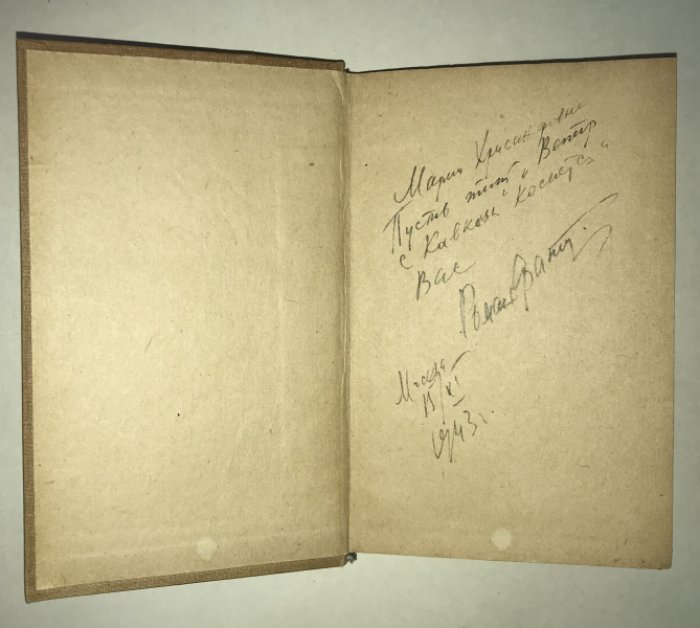 Марии Хрисанфовне
Пусть этот „Ветер
с Кавказа" коснется
Вас
Роман Фат
Москва
15/XI
1943 г.